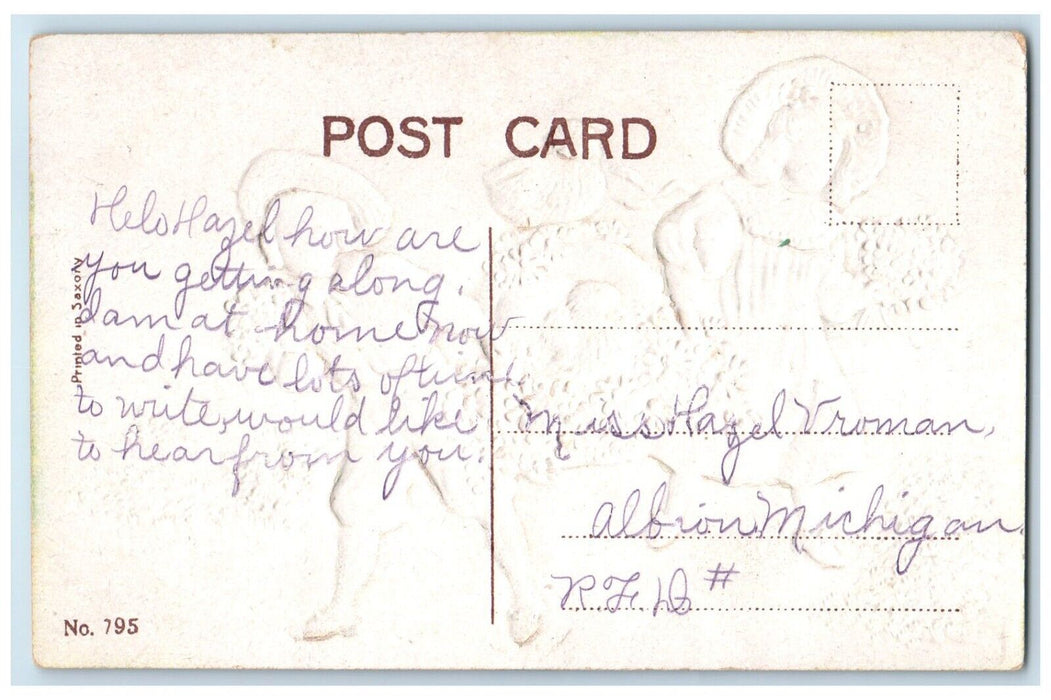 POST CARD
Helo Hazel how are
you getting along.
I am at home now
and have lots of time
to write, would like
to hear from you.
Printed in Saxony
Miss Hazel Vroman,
Albion, Michigan.
R.F.D. #
No. 795